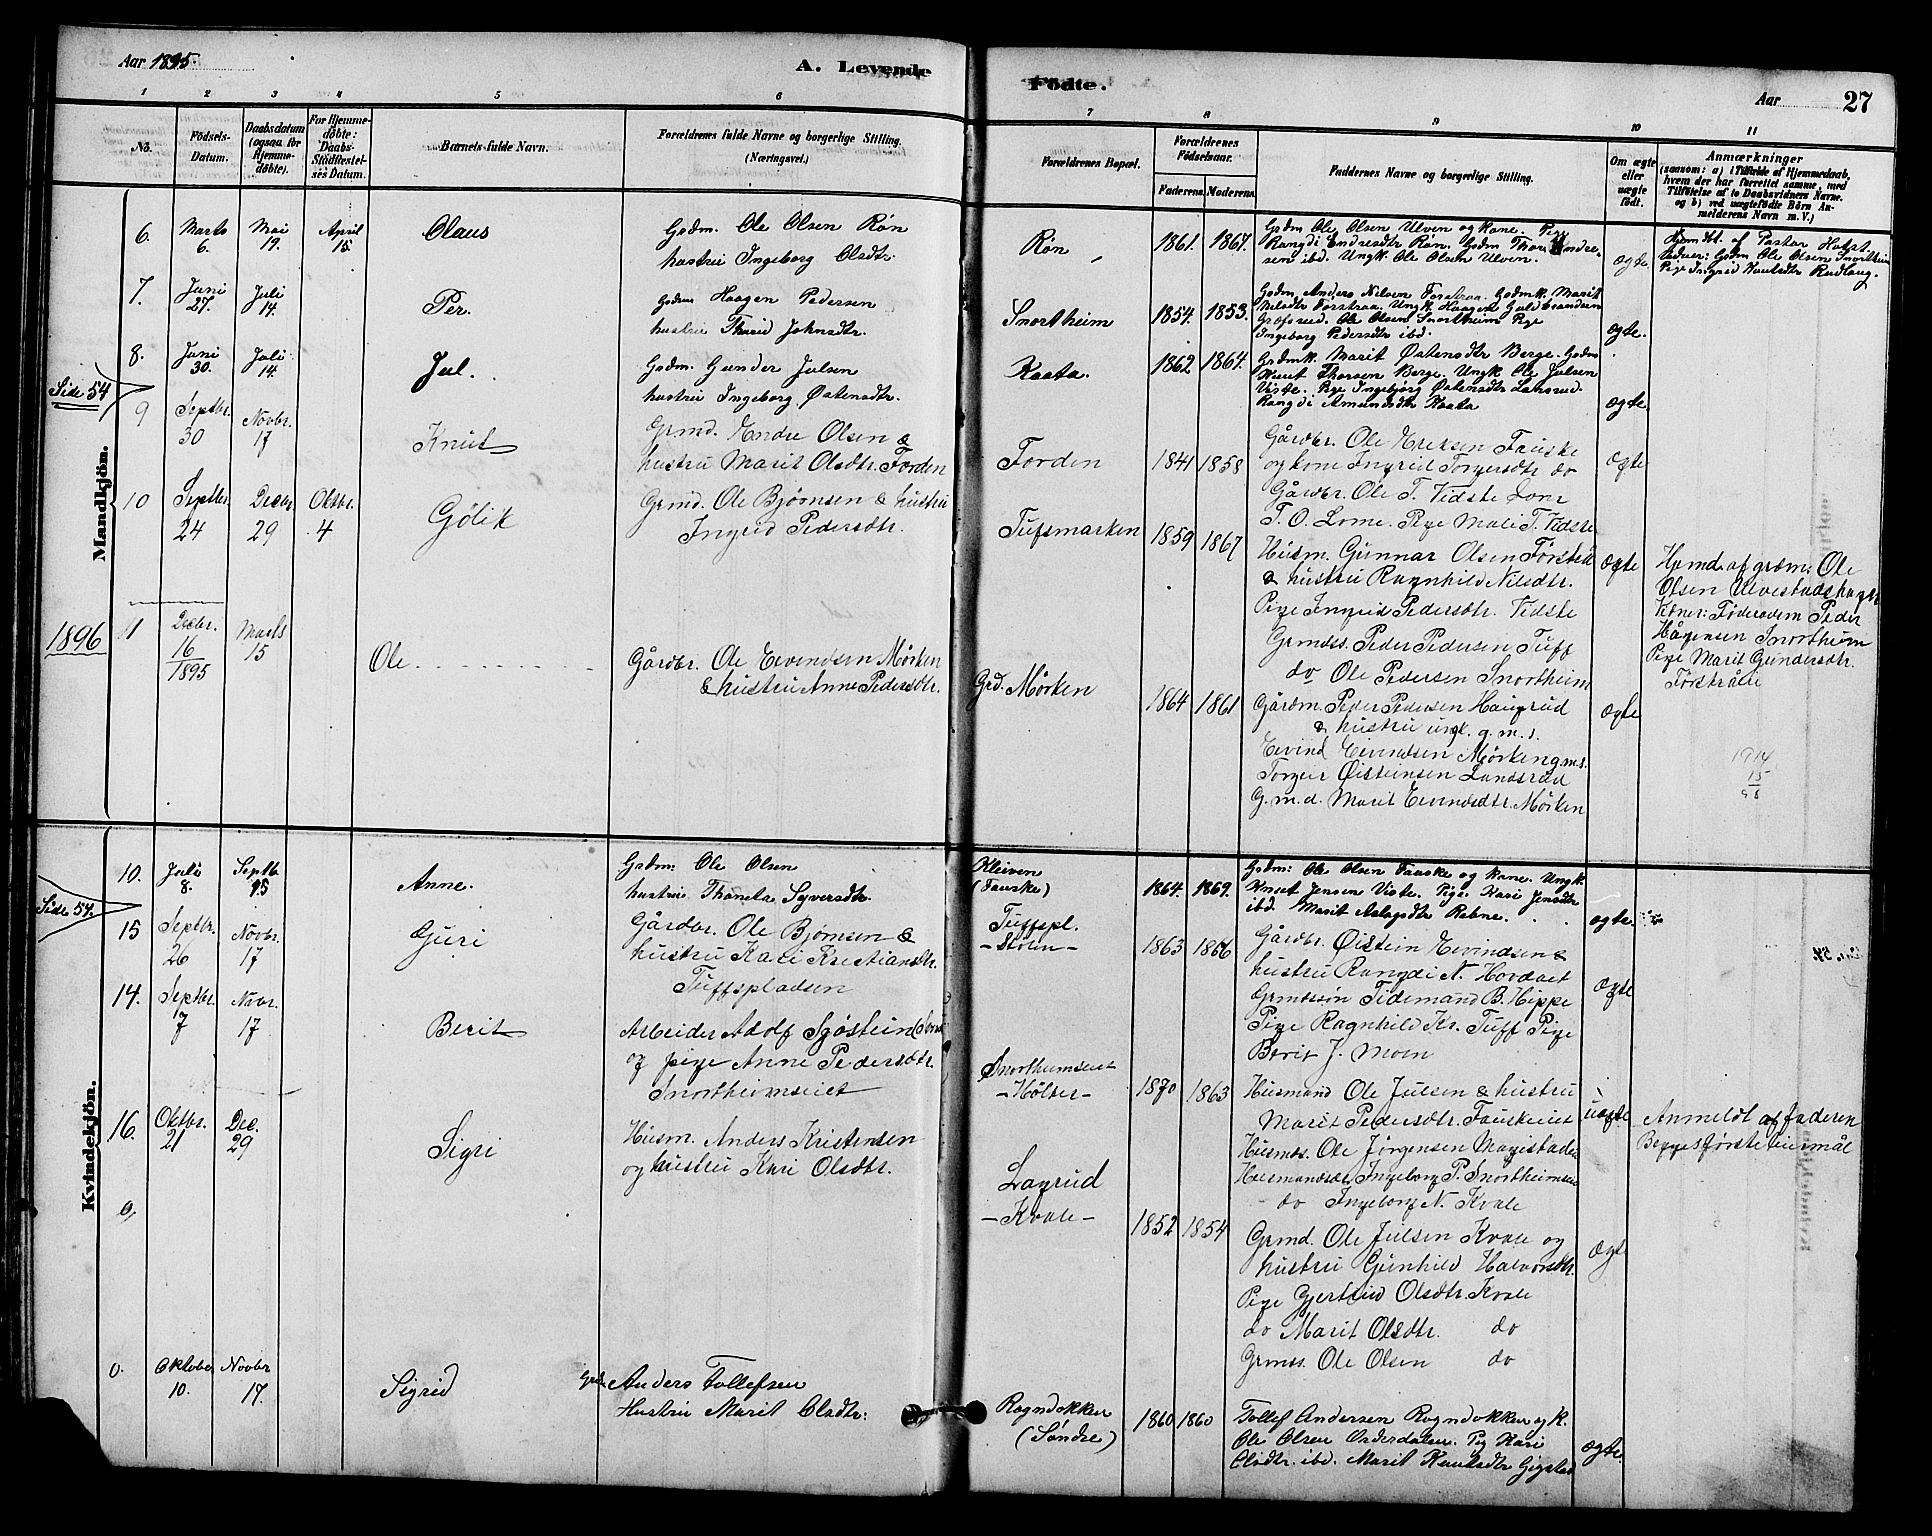 Aar 1895.
A. Levende Födte.
Aar
27
1 2 3 4 5 6 7 8 9 10 11
No.
Födsels-Datum.
Daabsdatum (ogsaa for Hjemmedöbte).
For Hjemmedöbte: Daabs-Stadfæstelses Datum.
Barnets fulde Navn.
Forældrenes fulde Navne og borgerlige Stilling. (Næringsvei.)
Forældrenes Bopæl.
Forældrenes Födselsaar.
Faderens. Moderens.
Faddernes Navne og borgerlige Stilling.
Om ægte eller uægte födt.
Anmærkninger
(saasom: a) i Tilfælde af Hjemmedaab, hvem der har forrettet samme, med Tilföielse af to Daabsvidners Navne. og b) ved uægtefödte Börn Anmelderens Navn m. V.)
Mandkjön.
6. Marts 6. Mai 19. April 15. Olaus
Gydm. Ole Olsen Røn
hustru Ingeborg Olsdtr.
Røn
1861. 1867.
Gydm. Ole Olsen Ulven og Kone. Pige
Rangdi Endresdtr Røn. Gydm Thor Endre-
sen ibd. Ungk. Ole Olsen Ulven.
ægte.
Hjem dbt. af Pastor
Vidner: Gydm Ole Olsen Snortheim
Pige Ingrid Knutsdtr Rudlaug.
7. Juni 27. Juli 14. Per.
Gydm Haagen Pedersen
hustru Thurid Johnsdtr.
Snortheim
1854. 1853.
Gydm Anders Nilsen Forstraa. Gydmk. Marit
Nilsdtr Forstraa. Ungk Haagen Guldbrandsen
Ole Olsen Snortheim Pige
Ingeborg Pedersdtr ibd.
ægte.
Side 54
8. Juni 30. Juli 14. Jul.
Gydm. Gunder Julsen
hustru Ingeborg Østensdtr.
Kaata.
1862 1864.
Gydmk. Marit Østensdtr Berge. Gydm
Knut Thorsen Berge. Ungk Ole Julsen
Viste. Pige Ingebjørg Østensdtr
Rangdi Amundsdtr Kaata
ægte.
9 Septbr. 30 Novbr. 17 Knut
Grmd. Endre Olsen &
hustru Marit Olsdtr. Førden
Førden
1841 1858
Gårdbr. Ole Eriksen Fauske
og kone Ingrid Torgersdtr do
Gårdbr. Ole T. Vidste Lome
T. O. Lome. Pige Mali T. Vidste
ægte
10 Septbr. 24 Decbr. 29 Oktbr. 4 Gølik
Grmd. Ole Bjørnsen & hustru
Ingrid Pedersdtr.
Tufsmarken
1859 1867
Husm. Gunnar Olsen Førstråe
& hustru Ragnhild Nilsdtr.
Pige Ingrid Pedersdtr. Vidste
Grmdss. Peder Pedersen Tuff
do Ole Pedersen Snortheim
ægte
Hjmd. af grdm: Ole
Olsen Ulvestadshagen
Vidner: Føderådsm Peder
Hågensen Snortheim
Pige Marit Gundersdtr.
Førstråe
1896
11 Decbr. 16 1895 Marts 15 Ole
Gårdbr. Ole Eivindsen Mørken
& hustru Anne Pedersdtr.
Grd. Mørken
1864 1861
Gårdm. Peder Pedersen Haugrud
& hustru
Eivind Eivindsen Mørken g.m.s.
Torger Øisteinsen Landsrud
G.m.d. Marit Eivindsdtr. Mørken
ægte
1914
15
98
Kvindekjön.
Side 54.
10. Juli 8. Septb. 15 Anne.
Gydm: Ole Olsen
hustru Thomda Syversdtr.
Kleiven
(Fauske)
1864. 1869.
Gydm: Ole Olsen Fauske og Kone. Ungk.
Knut Jensen Viste. Pige Kari Jensdtr
ibd. Marit Aslagsdtr Rebne.
ægte.
15 Septbr. 26 Novbr. 17 Guri
Gårdbr. Ole Bjørnsen &
hustru Kari Kristiansdtr.
Tuffspladsen
Tuffspl.
1863 1866
Gårdbr. Øistein Eivindsen &
hustru Rangdi N. Hovdaet
Grmdssøn Tidemand B. Hippe
Pige Ragnhild Kr. Tuff Pige
Berit J. Moen
ægte
14. Septbr. 7 Novbr. 17 Berit
Arbeider Adolf Sjøstein
og pige Anne Pedersdtr.
Snortheimseiet
Snortheimseiet
- Hølter -
1870 1863
Husmand Ole Julsen & hustru
Marit Pedersdtr. Fauskeeiet
Husmds. Ole Jørgensen Magistadei
Husmandsdtr. Ingeborg P. Snortheimsei
do Ingeborg N. Kvale
uægte
Anmeldt af faderen
Begges første leiermål
16. Oktbr. 21 Dec. 29 Sigri
Husm. Anders Kristensen
og hustru Kari Olsdtr.
Lagrud
- Kvale -
1852 1854
Grmd. Ole Julsen Kvale og
hustru Gunhild Halvorsdtr.
Pige Gjertrud Olsdtr. Kvale
do Marit Olsdtr. do
Grmss. Ole Olsen do
ægte
0,
0. Oktober 10. Novbr 17. Sigrid
Anders Tollefsen
Hustru Marit Olsdtr:
Rogndokken
(Søndre)
1860 1860
Tollef Andersen Rogndokken og K.
Ole Olsen Pig Kari
Olsdtr. ibd. Marit Knutsdtr Gigstad
ægte.